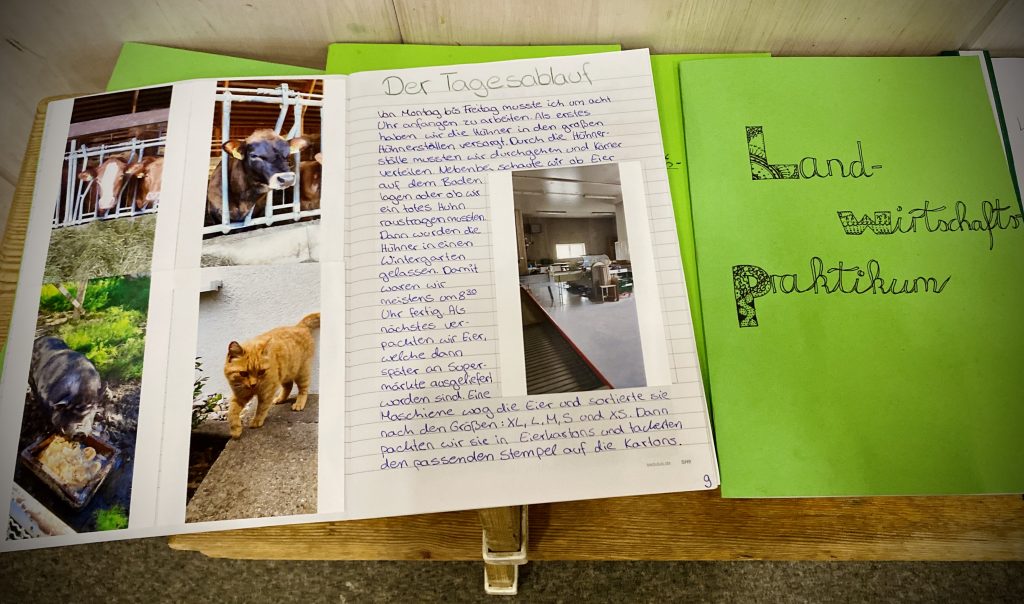 Der Tagesablauf
Von Montag bis Freitag musste ich um acht
Uhr anfangen zu arbeiten. Als erstes
haben wir die Hühner in den großen
Hühnerställen versorgt. Durch die Hühner-
ställe mussten wir durchgehen und Körner
verteilen. Nebenbei schaute wir ob Eier
auf dem Boden
lagen oder ob wir
ein totes Huhn
raustragen mussten.
Dann wurden die
Hühner in einen
Wintergarten
gelassen. Damit
waren wir
meistens um 8³⁰
Uhr fertig. Als
nächstes ver-
packten wir Eier,
welche dann
später an Super-
märkte ausgeliefert
worden sind. Eine
Maschiene wog die Eier und sortierte sie
nach den Größen: XL, L, M, S und XS. Dann
packten wir sie in Eierkartons und tackerten
den passenden Stempel auf die Kartons.
9
Land-
wirtschafts
Praktikum